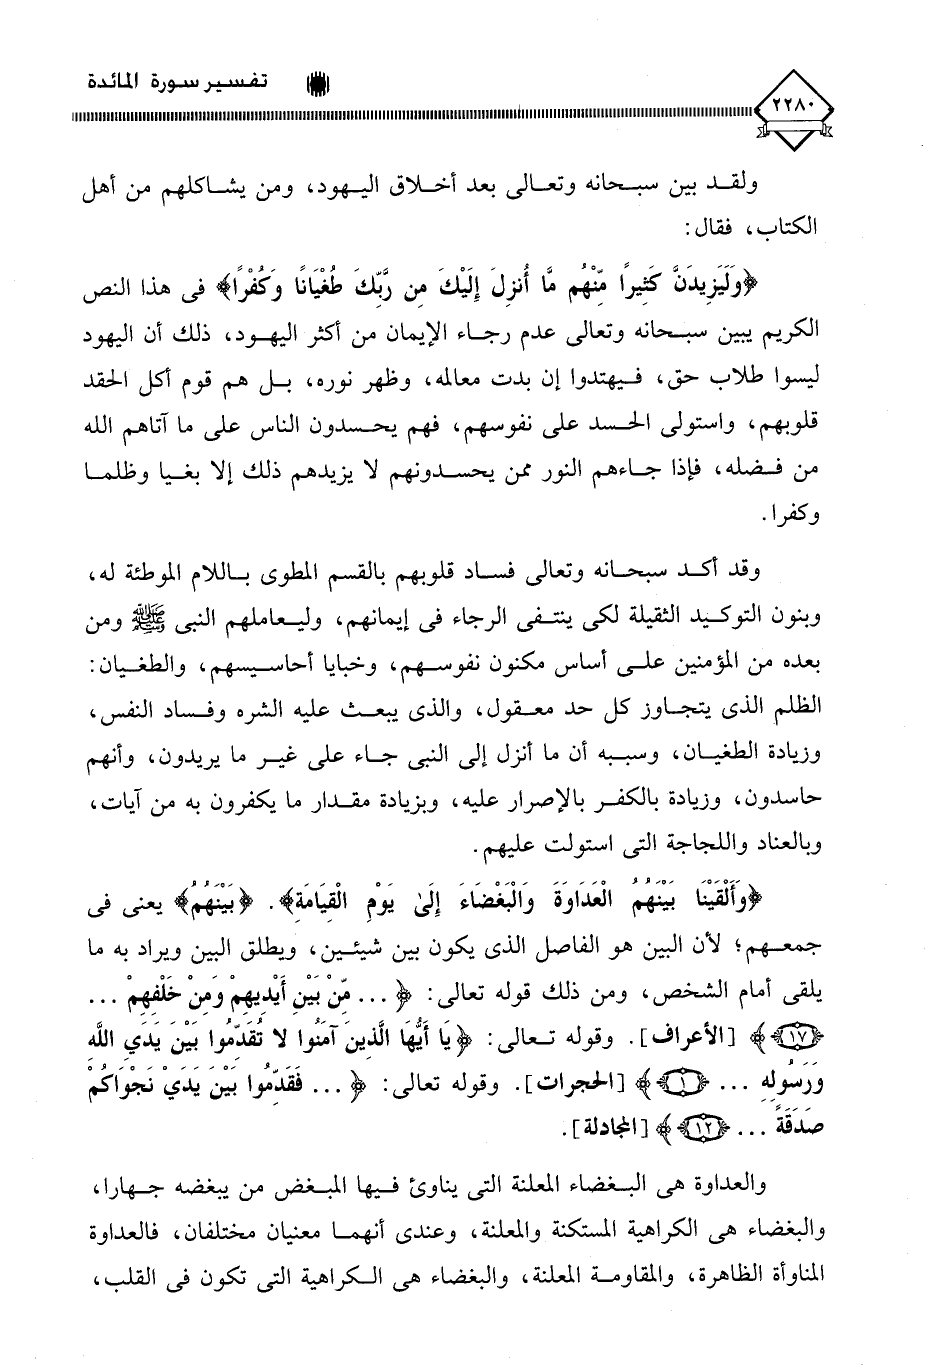 تفسير سورة المائدة
٢٢٨٠
ولقد بين سبحانه وتعالى بعد أخلاق اليهود، ومن يشاكلهم من أهل
الكتاب، فقال:
﴿وَلَيَزِيدَنَّ كَثِيرًا مِّنْهُم مَّا أُنزِلَ إِلَيْكَ مِن رَّبِّكَ طُغْيَانًا وَكُفْرًا﴾ فى هذا النص
الكريم يبين سبحانه وتعالى عدم رجاء الإيمان من أكثر اليهود، ذلك أن اليهود
ليسوا طلاب حق، فيهتدوا إن بدت معالمه، وظهر نوره، بل هم قوم أكل الحقد
قلوبهم، واستولى الحسد على نفوسهم، فهم يحسدون الناس على ما آتاهم الله
من فضله، فإذا جاءهم النور ممن يحسدونهم لا يزيدهم ذلك إلا بغيا وظلما
وكفرا.
وقد أكد سبحانه وتعالى فساد قلوبهم بالقسم المطوى باللام الموطئة له،
وبنون التوكيد الثقيلة لكى ينتفى الرجاء فى إيمانهم، وليعاملهم النبى ﷺ ومن
بعده من المؤمنين على أساس مكنون نفوسهم، وخبايا أحاسيسهم، والطغيان:
الظلم الذى يتجاوز كل حد معقول، والذى يبعث عليه الشره وفساد النفس،
وزيادة الطغيان، وسببه أن ما أنزل إلى النبى جاء على غير ما يريدون، وأنهم
حاسدون، وزيادة بالكفر بالإصرار عليه، وبزيادة مقدار ما يكفرون به من آيات،
وبالعناد واللجاجة التى استولت عليهم.
﴿وَأَلْقَيْنَا بَيْنَهُمُ الْعَدَاوَةَ وَالْبَغْضَاءَ إِلَىٰ يَوْمِ الْقِيَامَةِ﴾. ﴿بَيْنَهُمُ﴾ يعنى فى
جمعهم؛ لأن البين هو الفاصل الذى يكون بين شيئين، ويطلق البين ويراد به ما
يلقى أمام الشخص، ومن ذلك قوله تعالى: ﴿ ... مِّنْ بَيْنِ أَيْدِيهِمْ وَمِنْ خَلْفِهِمْ ...
﴿١٧﴾﴾ [الأعراف]. وقوله تعالى: ﴿يَا أَيُّهَا الَّذِينَ آمَنُوا لا تُقَدِّمُوا بَيْنَ يَدَيِ اللَّهِ
وَرَسُولِهِ ... ﴿١﴾﴾ [الحجرات]. وقوله تعالى: ﴿ ... فَقَدِّمُوا بَيْنَ يَدَيْ نَجْوَاكُمْ
صَدَقَةً ... ﴿١٢﴾﴾ [المجادلة].
والعداوة هى البغضاء المعلنة التى يناوئ فيها المبغض من يبغضه جهارا،
والبغضاء هى الكراهية المستكنة والمعلنة، وعندى أنهما معنيان مختلفان، فالعداوة
المناوأة الظاهرة، والمقاومة المعلنة، والبغضاء هى الكراهية التى تكون فى القلب،